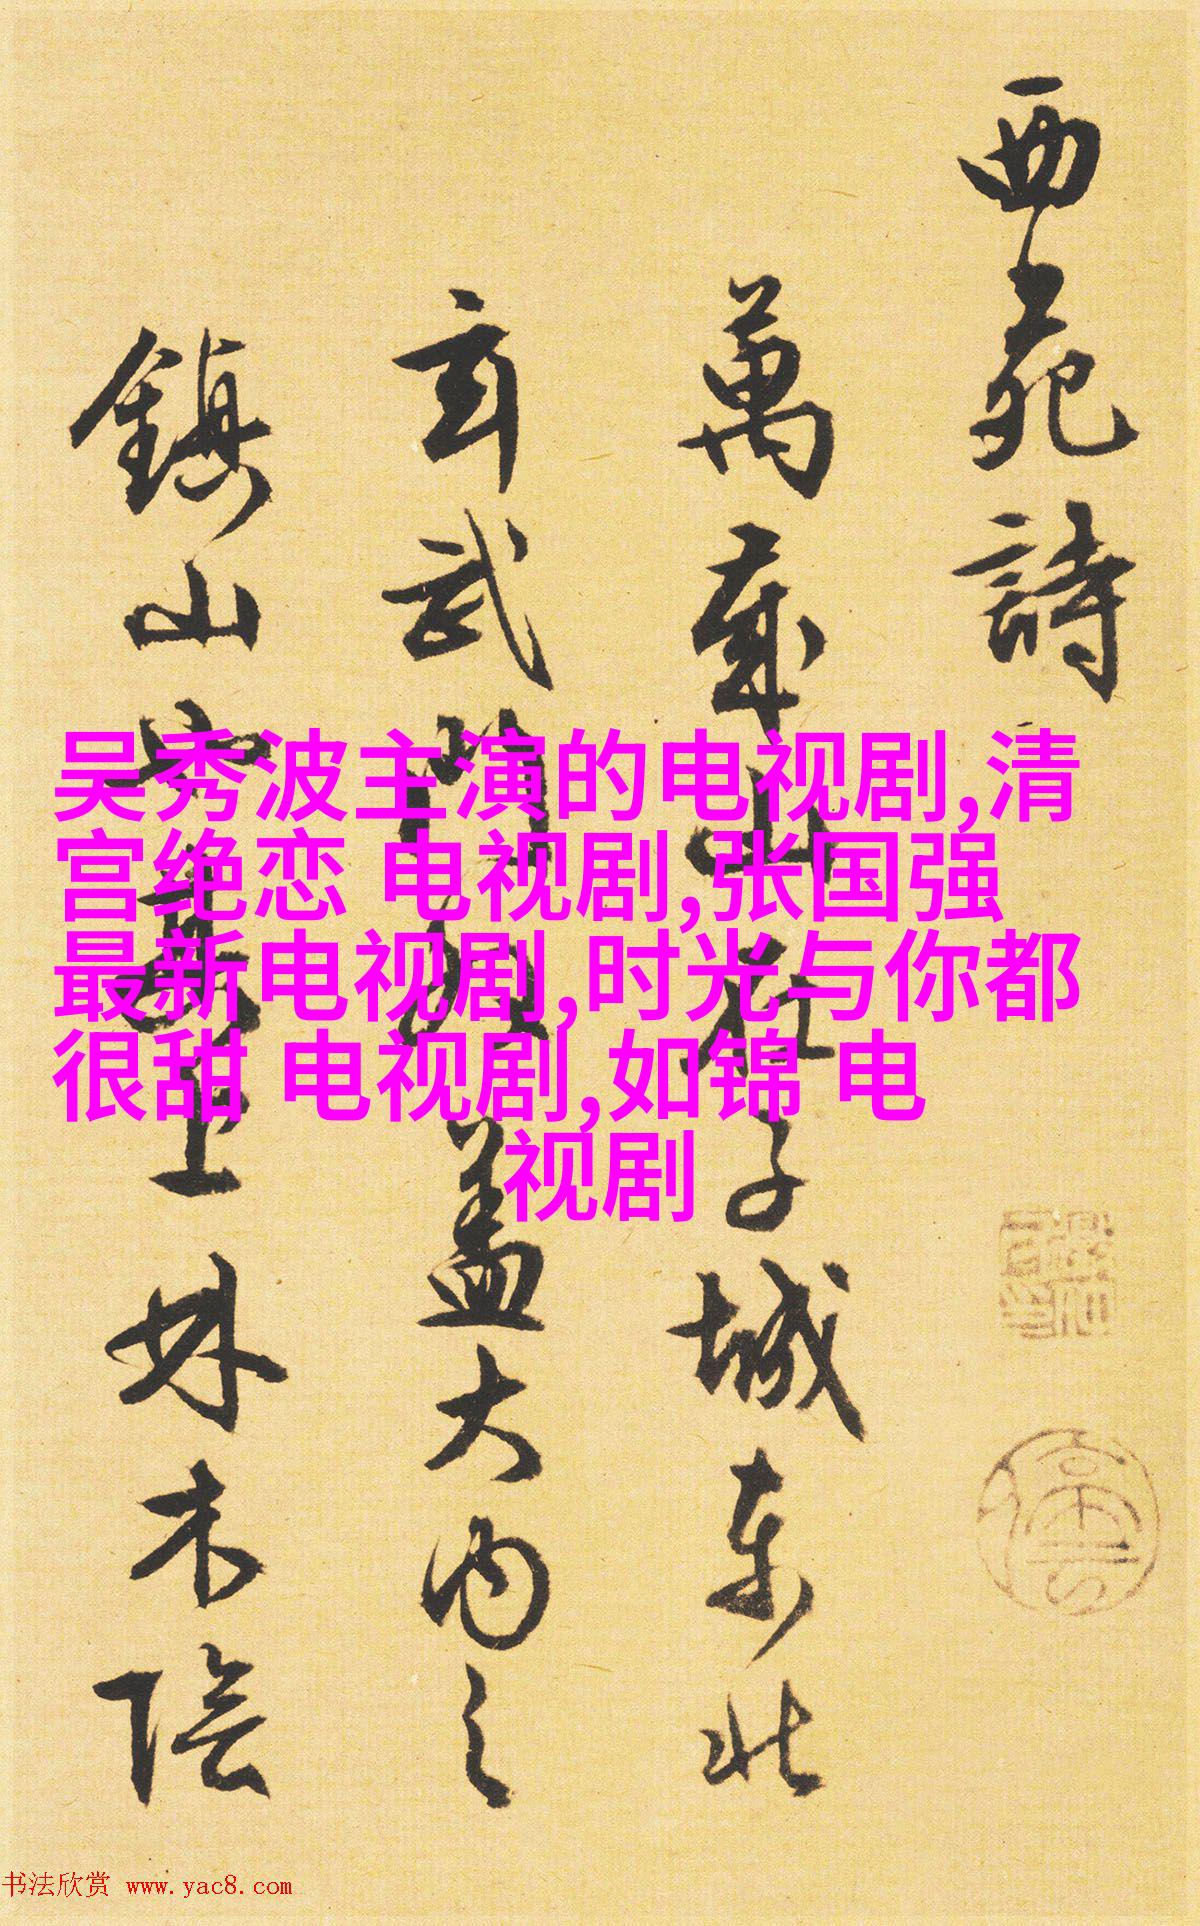 西苑詩
萬歲山在子城東北
玄武門外蓋大內之
鎮山上林木陰
吴秀波主演的电视剧,清
宫绝恋 电视剧,张国强
最新电视剧,时光与你都
很甜 电视剧,如锦 电
视剧
书法欣赏 www.yac8.com